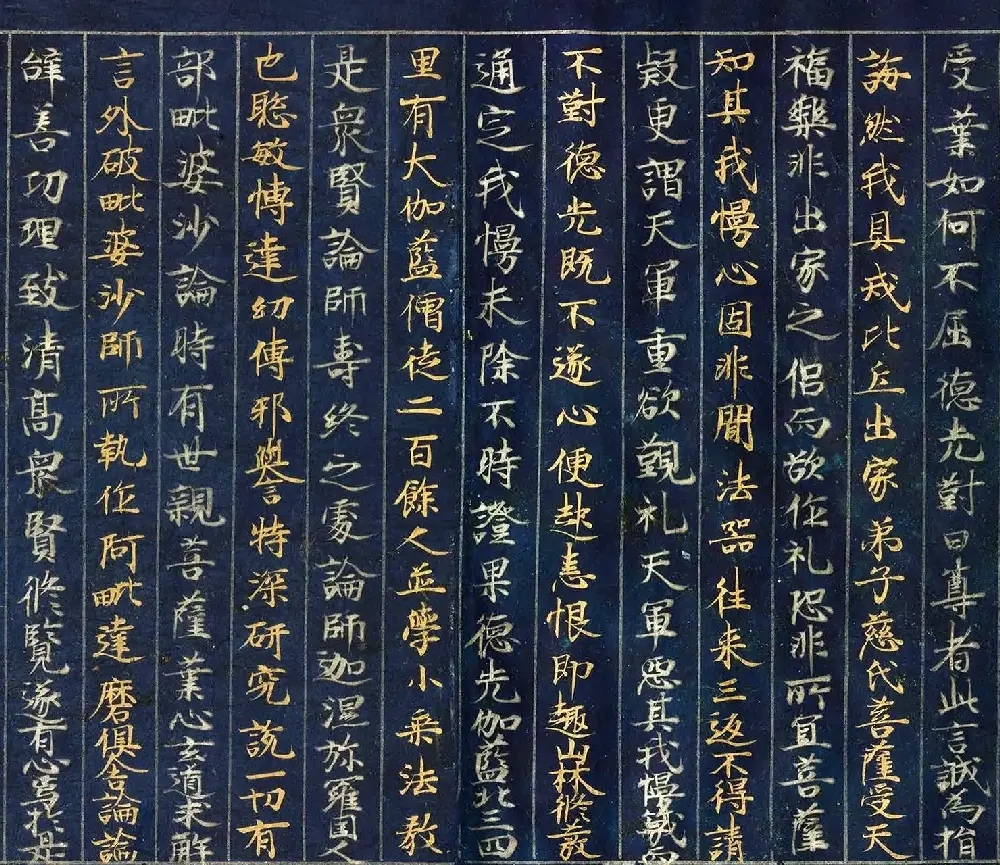 受業如何不屈德光對曰尊者此言誠為指
誨然我具戒比丘出家弟子慈氏菩薩受天
福樂非出家之侶而欲作礼恐非所宜菩薩
知其我慢心固非聞法器往来三返不得請
疑更謂天軍重欲覲礼天軍惡其我慢蔑而
不對德光既不遂心便起恚恨即趣山林修發
通定我慢未除不時證果德光伽藍北三四
里有大伽藍僧徒二百餘人並學小乘法教
是衆賢論師壽終之處論師迦湿弥羅国人
也聡敏愽達幼傳邪譽特深研究説一切有
部毗婆沙論時有世親菩薩業心玄道求解
言外破毗婆沙師所執作阿毗達磨俱舍論論
辞善功理致清髙衆賢修覽遂有心焉於是